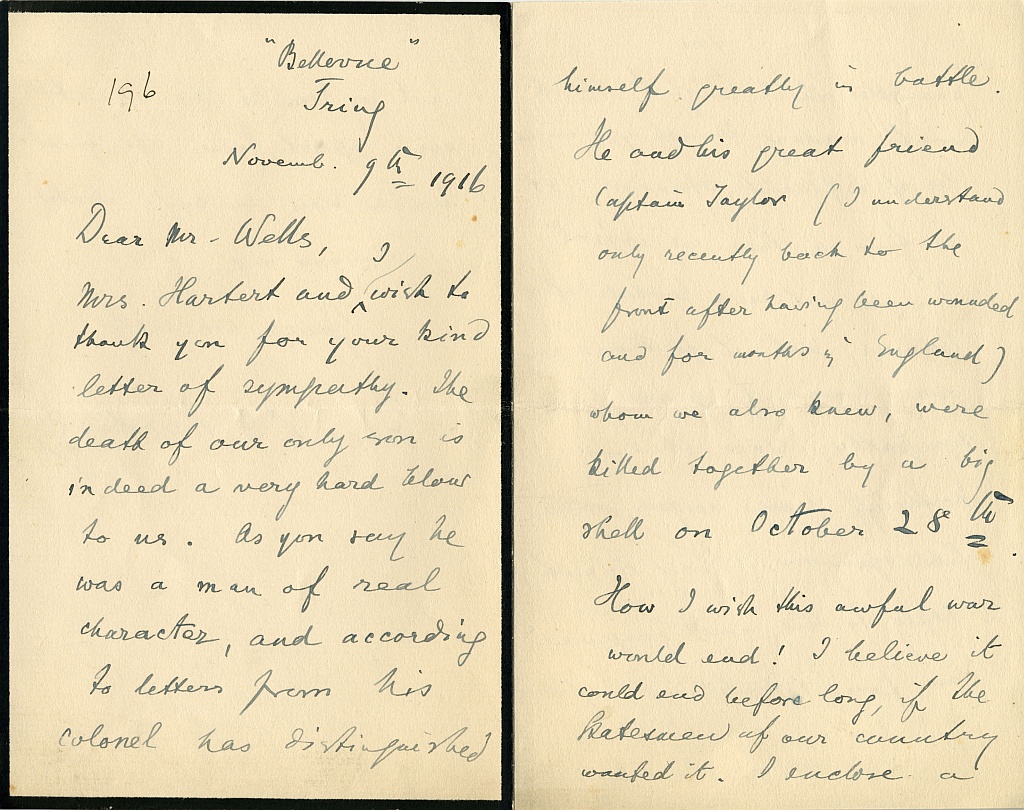 "Bellevue"
196
Tring
Novemb. 9th 1916
Dear Mr. Wells,
Mrs. Hartert and I wish to
thank you for your kind
letter of sympathy. The
death of our only son is
indeed a very hard blow
to us. As you say he
was a man of real
character, and according
to letters from his
colonel has distinguished
himself greatly in battle.
He and his great friend
Captain Taylor (I understand
only recently back to the
front after having been wounded
and for months in England)
whom we also knew, were
killed together by a big
shell on October 28th
How I wish this awful war
would end! I believe it
could end before long, if the
statesmen of our country
wanted it. I enclose a